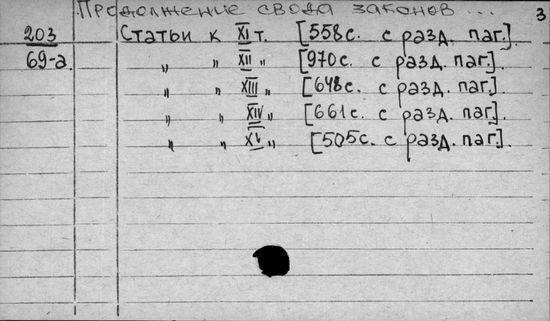 Продолжение свода законов ... 3
203 Статьи к XI т. [558 с. с разд. паг.]
69-а „ „ XII „ [970 с. с разд. паг.].
„ „ XIII „ [648 с. с разд. паг.]
„ „ XIV „ [661 с. с разд. паг.]
„ „ XV „ [505 с. с разд. паг.].